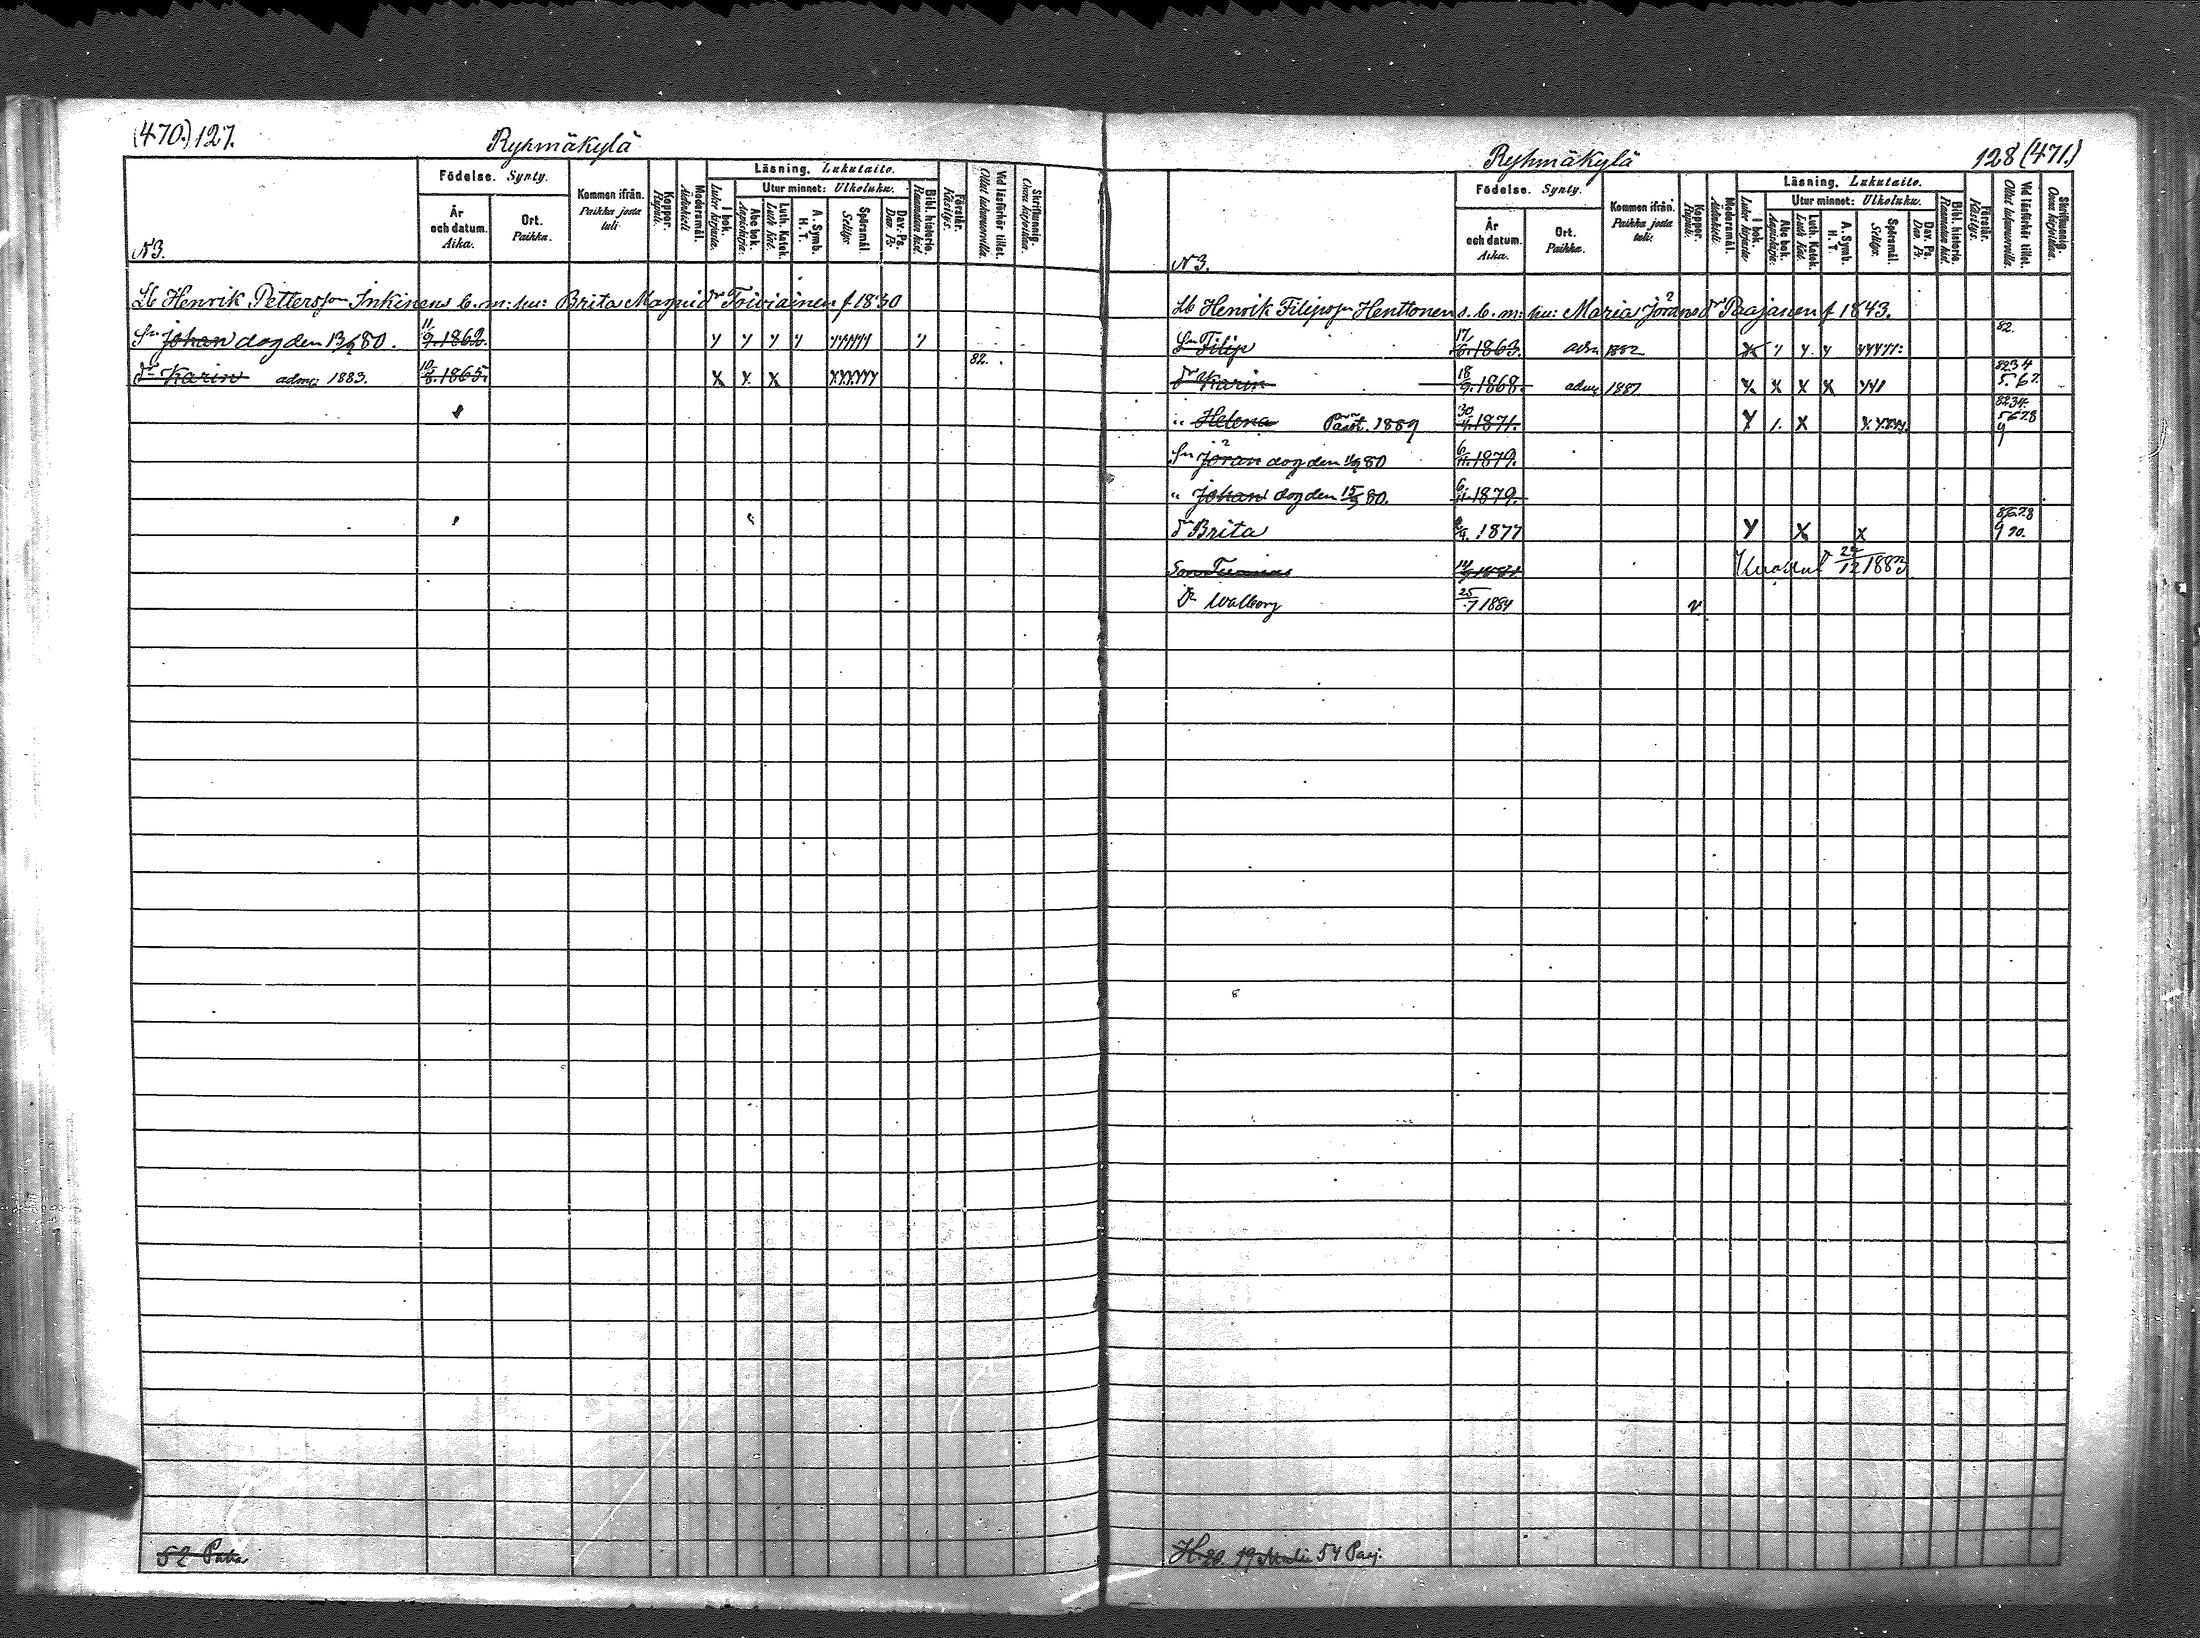 (470.) 127.
Ryhmäkylä
N3.
Födelse. Synty.
År och datum. Aika.
Ort. Paikka.
Kommen ifrån. Paikka josta tuli.
Koppor. Rupuli.
Modersmål. Äidinkieli
Läsning. Lukutaito.
I bok. Luku kirjasta.
Utur minnet: Ulkoluku.
Abc bok. Aapiskirja.
Luth. Katek. Luth. Kat.
A. Symb. H. T.
Spörsmål. Selitys.
Dav. Ps. Dav. Ps.
Bibl. historia. Raamatun hist.
Förstår. Käsitys.
Vid läsförhör tillst. Ollut lukuvuorolla.
Skrifkunnig. Osaa kirjoittaa.
Lb Henrik Petterss:on Inkinens b. m: hu: Brita Magnid:r Toiviainen f 1830
Sn Johan dog den 13/9 80. 11/9. 1862. y y y y yyyyy y
dr Karin adm: 1883. 1865. x x x xxxxxx 82.
52 Paka
Ryhmäkylä
128 (471.)
N3.
Födelse. Synty.
År och datum. Aika.
Ort. Paikka.
Kommen ifrån. Paikka josta tuli.
Koppor. Rupuli.
Modersmål. Äidinkieli.
Läsning. Lukutaito.
I bok. Luku kirjasta.
Utur minnet: Ulkoluku.
Abc bok. Aapiskirja.
Luth. Katek. Luth. Kat.
A. Symb. H. T.
Spörsmål. Selitys.
Dav. Ps. Dav. Ps.
Bibl. historia. Raamatun hist.
Förstår. Käsitys.
Vid läsförhör tillst. Ollut lukuvuorolla.
Skrifkunnig. Osaa kirjoittaa.
Lb Henrik Filipss:on Henttonens b. m: hu: Maria Jöransd:r Paajanen f 1843.
Sn Filip 17/6. 1863. adm 1882 x y y y yyyyy: 82.
dr Karin 18/9. 1868. adm 1887 x x x x yyy 8234 5. 67.
" Helena Pääst. 1889 30/ 1871. y x x.xxxx. 8234. 5678 9
Sn Jöran dog den 11/9 80 6/11. 1879.
" Johan dog den 15/9 80. 6/11. 1879.
dr Brita 1877 y x x 5678 9 90.
Son Tuomas Kuollut 22/12 1883
Dr Walborg 25/7 1884 v
54 Paaj.